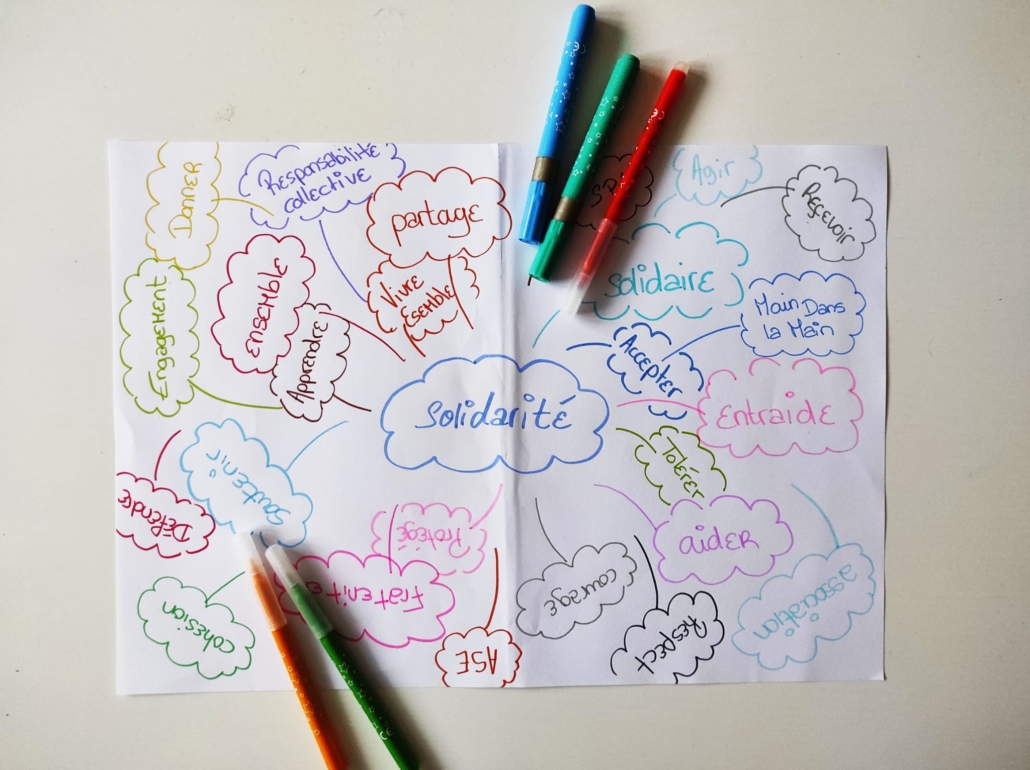 Donner
Responsabilité
collective
partage
Agir
Recevoir
Ensemble
Vivre
Esemble
solidaire
Main Dans
la Main
Engagement
Apprendre
Accepter
Solidarité
Entraide
Tolérer
Soutenir
Défendre
Protégé
aider
Fraternite
courage
association
cohésion
ASE
Respect